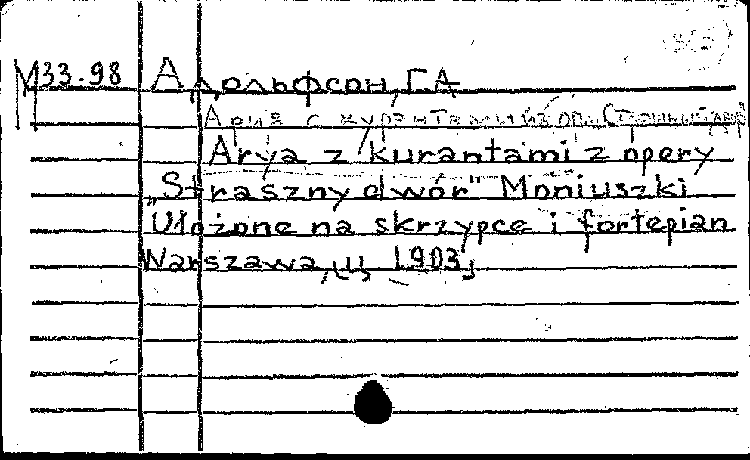 М33-98 Адольфсон, Г.А
Ария с курантами из оп. Страшный двор
Arya z kurantami z opery
„Straszny dwór" Moniuszki
Ułożone na skrzypce i fortepian
Warszawa, ц, [1903]